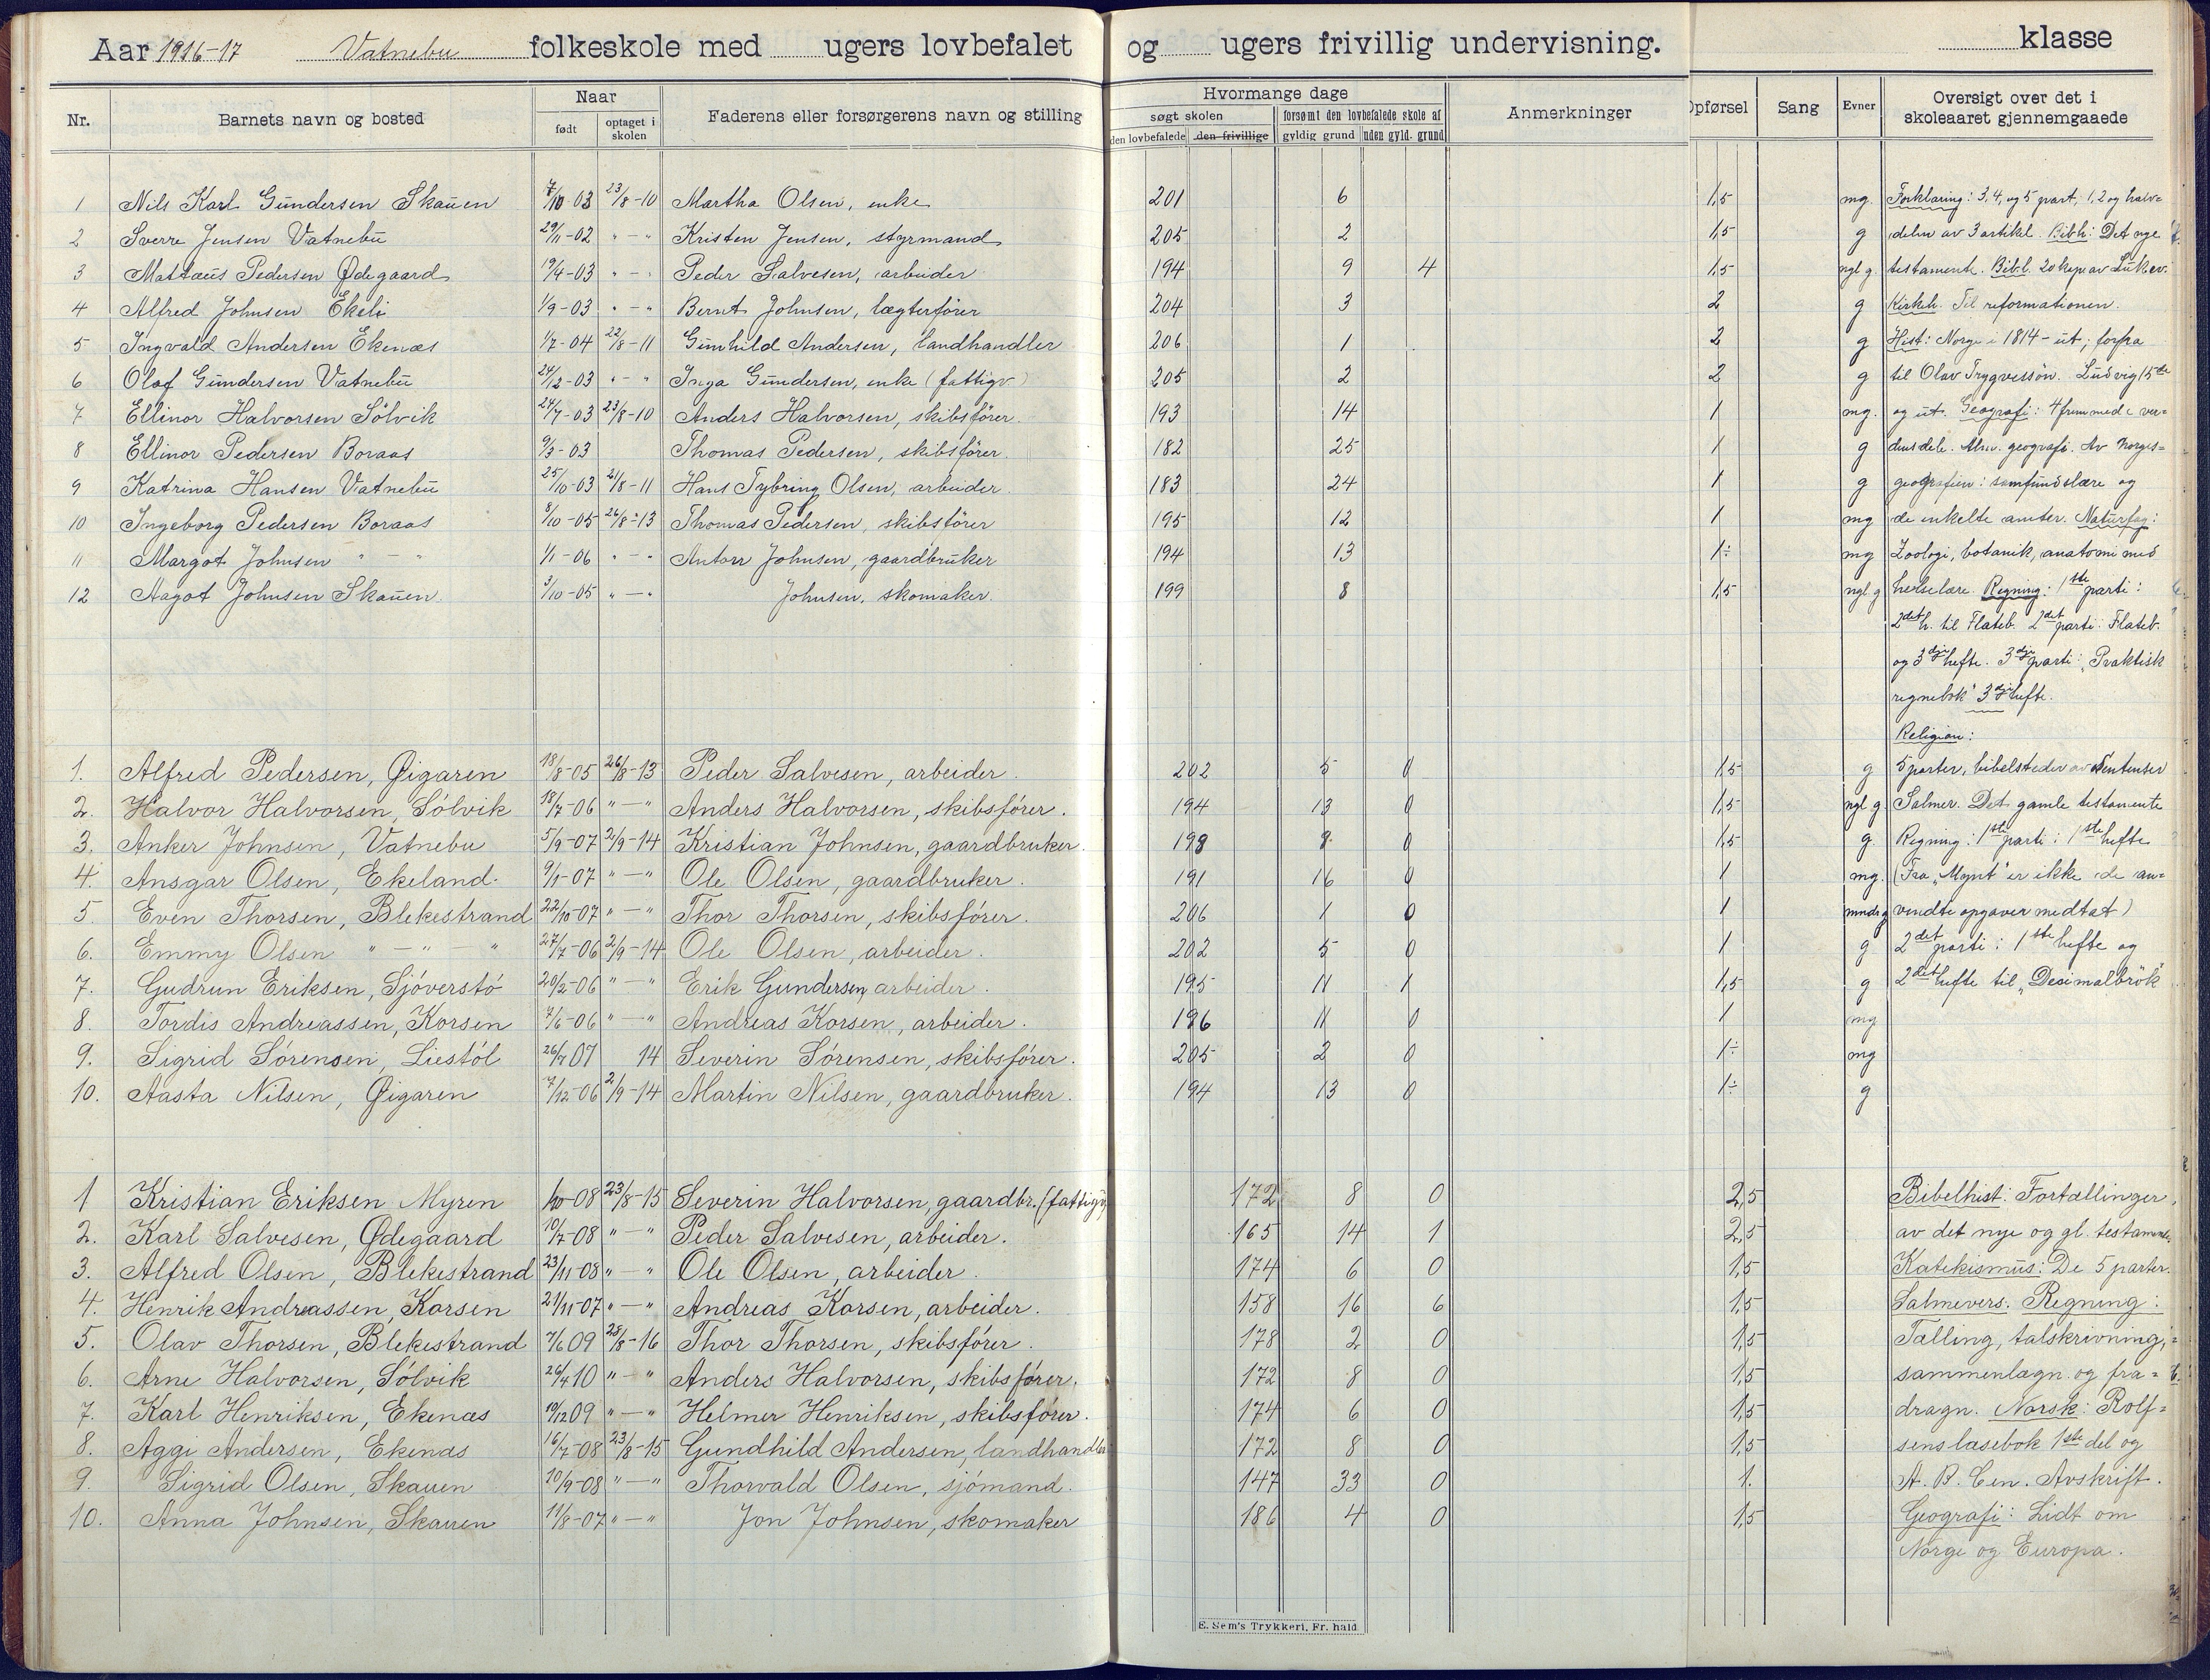 Aar 1916-17 Vatnebu folkeskole med ugers lovbefalet og ugers frivillig undervisning. klasse
Nr. Barnets navn og bosted Naar født optaget i skolen Faderens eller forsørgerens navn og stilling Hvormange dage søgt skolen den lovbefalede den frivillige forsømt den lovbefalede skole af gyldig grund uden gyld. grund Anmerkninger Opførsel Sang Evner Oversigt over det i skoleaaret gjennemgaaede
1 Nils Karl Gundersen Skauen 7/10-03 23/8-10 Martha Olsen, enke 201 6 1,5 mg. Forklaring: 3, 4, og 5 part, 1, 2 og halv=
2 Sverre Jensen Vatnebu 29/11-02 " - " Kristen Jensen, styrmand 205 2 1,5 g delen av 3 artikel. Bibh: Det nye
3 Mattæus Pedersen Ødegaard 19/4-03 " - " Peder Salvesen, arbeider 194 9 4 1,5 ngl g. testamente. Bibl. 20 kap. av Luk.ev.
4 Alfred Johnsen Ekeli 1/9-03 " - " Bernt Johnsen, lægterfører 204 3 2 g Kirkeh. Til reformationen.
5 Ingvald Andersen Ekenæs 1/7-04 22/8-11 Gunhild Andersen, landhandler 206 1 2 g Hist: Norge i 1814 - ut; forfra
6 Olaf Gundersen Vatnebu 24/12-03 " - " Inga Gundersen, enke (fattigv.) 205 2 2 g til Olav Trygvessøn. Ludvig 15de
7 Ellinor Halvorsen Sølvik 24/7-03 23/8-10 Anders Halvorsen, skibsfører. 193 14 1 mg. og ut. Geografi: 4 fremmede ver=
8 Ellinor Pedersen Boraas 9/3-03 Thomas Pedersen, skibsfører. 182 25 1 g densdele. Alm. geografi. Av Norges=
9 Katrina Hansen Vatnebu 25/10-03 21/8-11 Hans Tybring Olsen, arbeider. 183 24 1 g geografien: samfundslære og
10 Ingeborg Pedersen Boraas 8/10-05 26/8-13 Thomas Pedersen, skibsfører 195 12 1 mg de enkelte amter. Naturfag:
11 Margot Johnsen " - " 1/1-06 " - " Anton Johnsen, gaardbruker 194 13 1÷ mg Zoologi, botanik, anatomi med
12 Aagot Johnsen Skauen. 3/10-05 " - " Johnsen, skomaker. 199 8 1,5 ngl g helselære. Regning: 1ste parti:
2det h. til Flateb. 2det parti: Flateb.
og 3dje hefte. 3dje parti: "Praktisk
regnebok" 3dje hefte.
Religion:
1. Alfred Pedersen, Øigaren 18/8-05 26/8-13 Peder Salvesen, arbeider. 202 5 0 1,5 g 5 parter, bibelsteder av Sentenser
2. Halvor Halvorsen, Sølvik 18/7-06 " - " Anders Halvorsen, skibsfører. 194 13 0 1,5 ngl g. Salmer. Det gamle testamente
3. Anker Johnsen, Vatnebu 5/9-07 2/9-14 Kristian Johnsen, gaardbruker. 198 8 0 1,5 g. Regning: 1ste parti: 1ste hefte
4. Ansgar Olsen, Ekeland. 9/11-07 " - " Ole Olsen, gaardbruker. 191 16 0 1 mg. (Fra "Mynt" er ikke de an=
5. Even Thorsen, Blekestrand 22/10-07 " - " Thor Thorsen, skibsfører. 206 1 0 1 vendte opgaver medtat)
6. Emmy Olsen " - " - " 27/7-06 2/9-14 Ole Olsen, arbeider. 202 5 0 1 g 2det parti: 1ste hefte og
7. Gudrun Eriksen, Sjøverstø 20/2-06 " - " Erik Gundersen, arbeider. 195 11 1 1,5 g 2det hefte til "Desimalbrøk"
8. Tordis Andreassen, Korsen 7/6-06 " - " Andreas Korsen, arbeider. 196 11 0 1 mg
9. Sigrid Sørensen, Liestøl 26/7 07 14 Severin Sørensen, skibsfører. 205 2 0 1÷ mg
10. Aasta Nilsen, Øigaren 7/12-06 2/9-14 Martin Nilsen, gaardbruker. 194 13 0 1÷ g
1 Kristian Eriksen Myren 1/10-08 23/8-15 Severin Halvorsen, gaardbr. (fattigv. 172 8 0 2,5 Bibelhist: Fortællinger
2. Karl Salvesen, Ødegaard 10/7-08 " - " Peder Salvesen, arbeider. 165 14 1 2,5 av det nye og gl. testamente.
3. Alfred Olsen, Blekestrand 23/11-08 " - " Ole Olsen, arbeider. 174 6 0 1,5 Katekismus: De 5 parter.
4. Henrik Andreassen, Korsen 21/11-07 " - " Andreas Korsen, arbeider. 158 16 6 1,5 Salmevers. Regning:
5. Olav Thorsen, Blekestrand 7/6 09 28/8-16 Thor Thorsen, skibsfører. 178 2 0 1,5 Tælling, talskrivning,
6. Arne Halvorsen, Sølvik 26/4 10 " - " Anders Halvorsen, skibsfører. 172 8 0 1,5 sammenlægn. og fra=
7. Karl Henriksen, Ekenæs 10/12 09 " - " Helmer Henriksen, skibsfører. 174 6 0 1,5 dragn. Norsk: Rolf=
8. Agge Andersen, Ekenæs 16/7-08 23/8-15 Gundhild Andersen, landhandler 172 8 0 1,5 sens læsebok 1ste del og
9. Sigrid Olsen, Skauen 10/9-08 " - " Thorvald Olsen, sjømand. 147 33 0 1. A. B. Cen. Avskrift.
10. Anna Johnsen, Skauen 11/8-07 " - " Jon Johnsen, skomaker 186 4 0 1,5 Geografi: Lidt om
Norge og Europa.
E. Sem's Trykkeri, Fr. hald